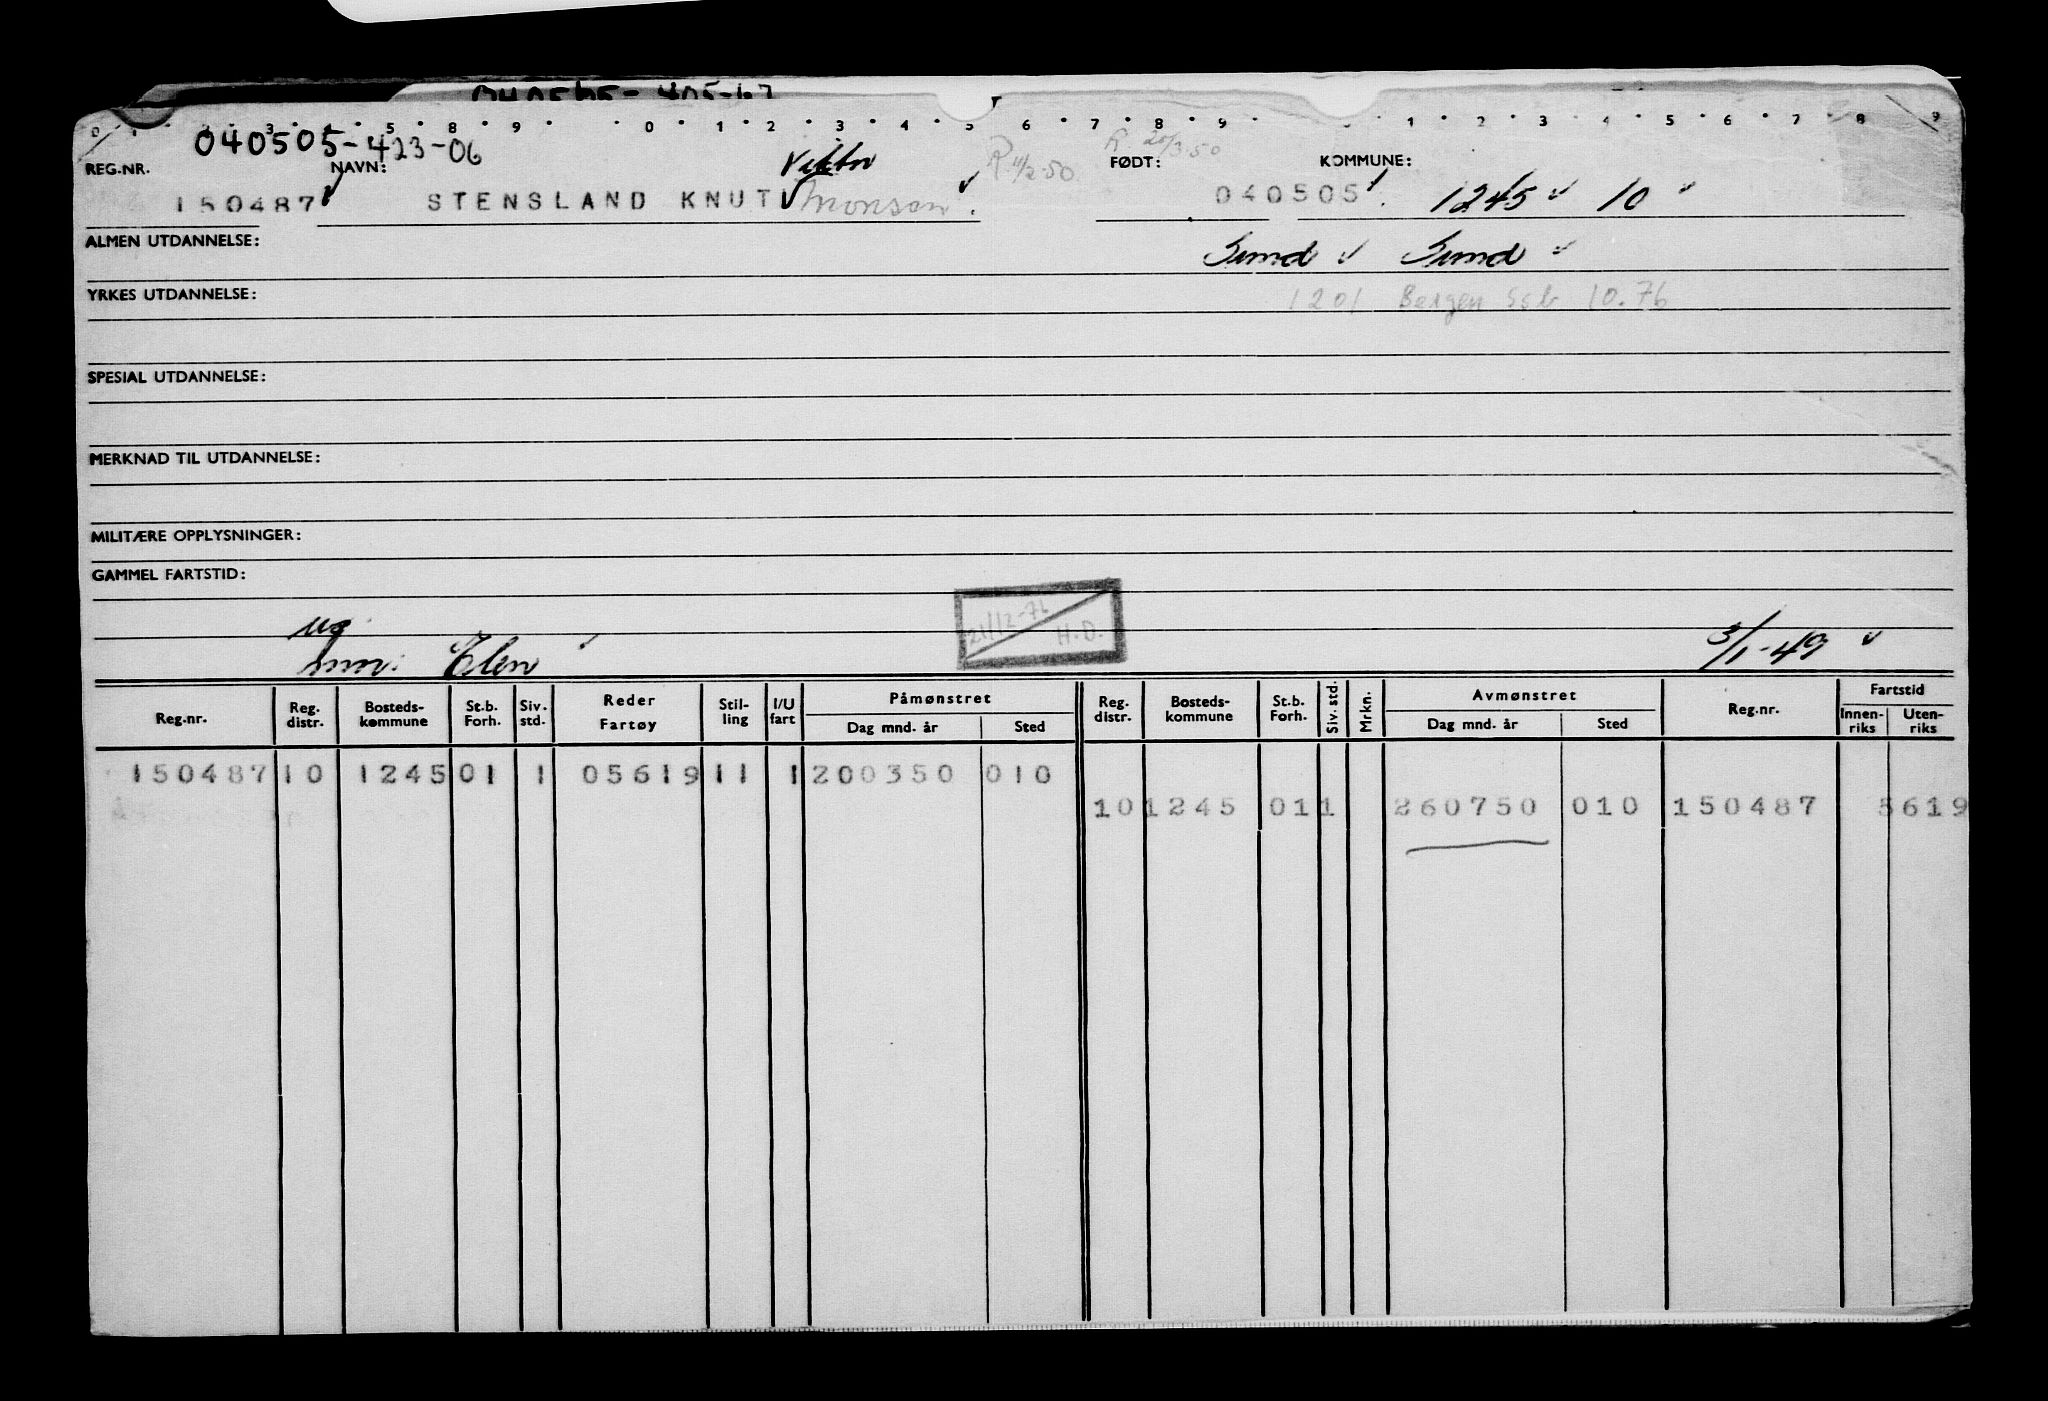 0 1 3 4 5 8 9 0 1 2 3 4 5 6 7 8 9 1 2 3 4 5 6 7 8 9
040505-423-06
R 11/2-50 R. 20/3-50
REG.NR. NAVN: FØDT: KOMMUNE:
150487 STENSLAND KNUT Monsen. 040505. 1245 10
ALMEN UTDANNELSE: Sund Sund
YRKES UTDANNELSE: 1201 Bergen Ssb 10.76
SPESIAL UTDANNELSE:
MERKNAD TIL UTDANNELSE:
MILITÆRE OPPLYSNINGER:
GAMMEL FARTSTID:
21/12-76 H.O.
ug.
mm: Elen 3/1-49
Reg.nr. Reg. distr. Bosteds-kommune St.b. Forh. Siv. std. Reder Fartøy Stil-ling I/U fart Påmønstret Dag mnd. år Sted Reg. distr. Bosteds-kommune St.b. Forh. Siv. std. Mrkn. Avmønstret Dag mnd. år Sted Reg.nr. Fartstid Innen-riks Uten-riks
150487 10 1245 01 1 05619 11 1 200350 010
10 1245 01 1 260750 010 150487 5619